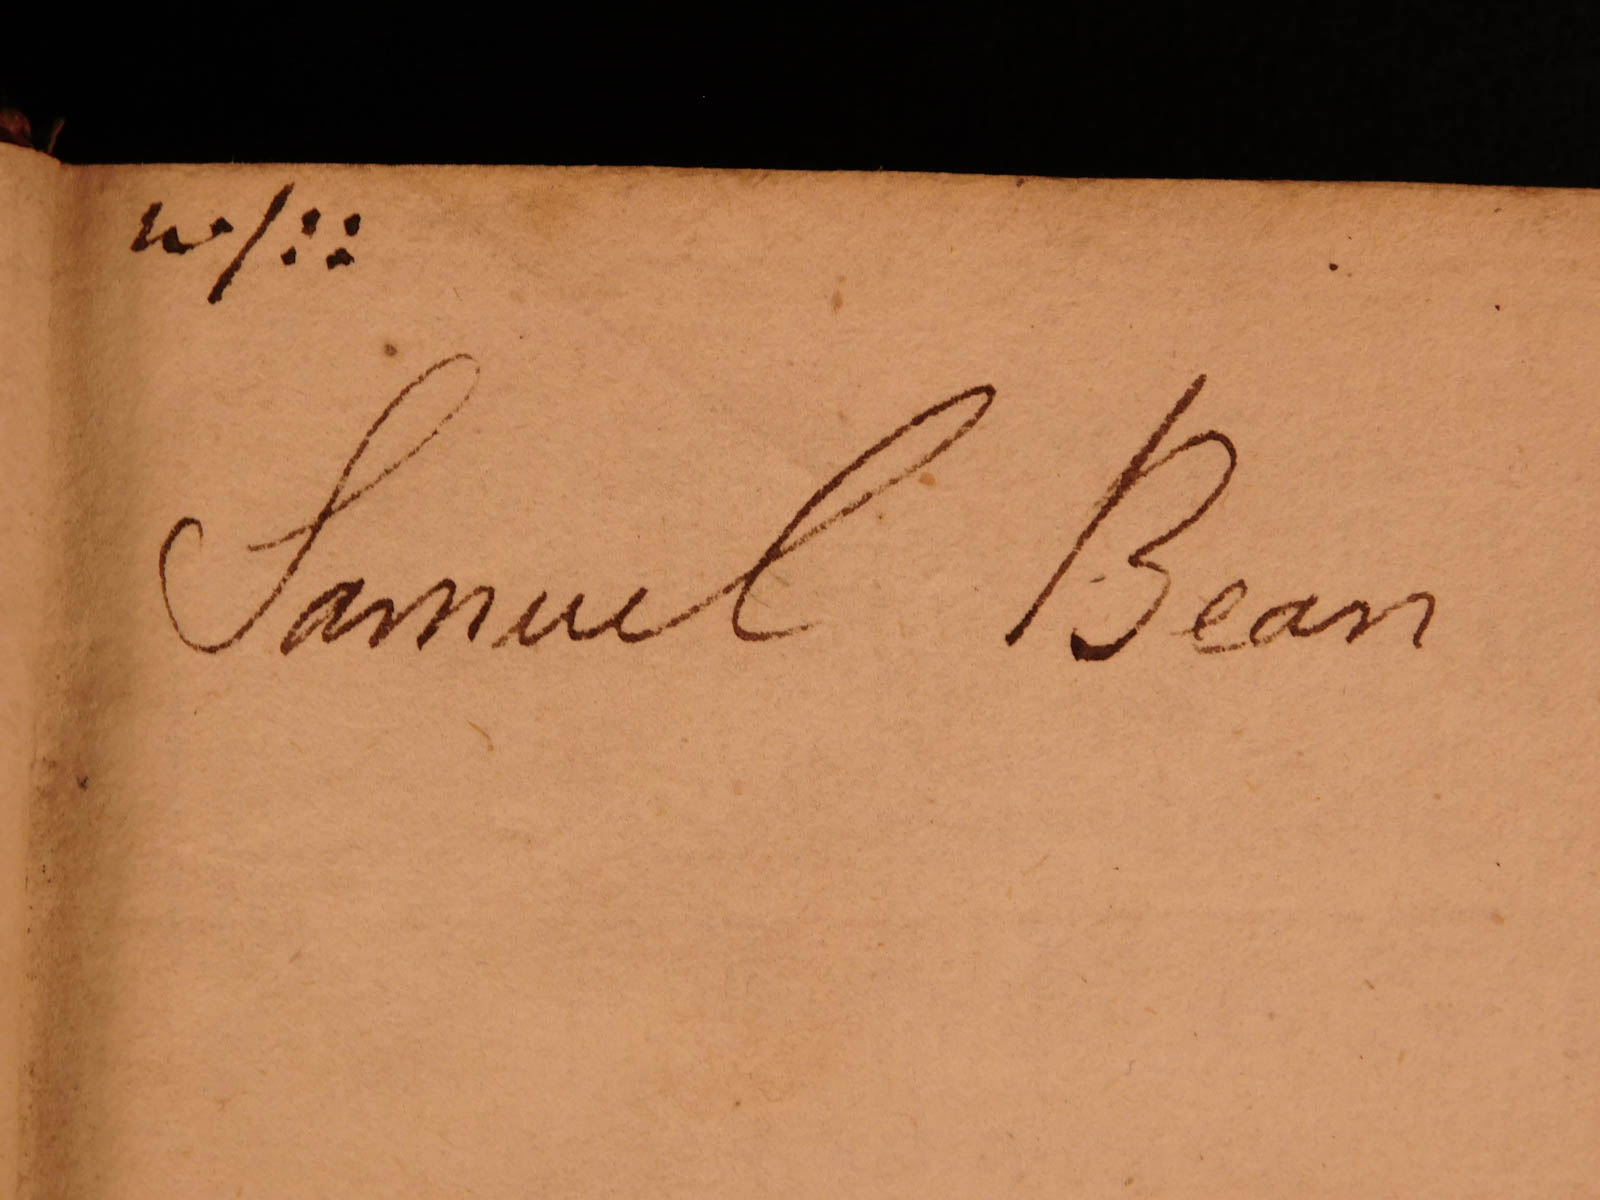 w/::
Samuel Bean